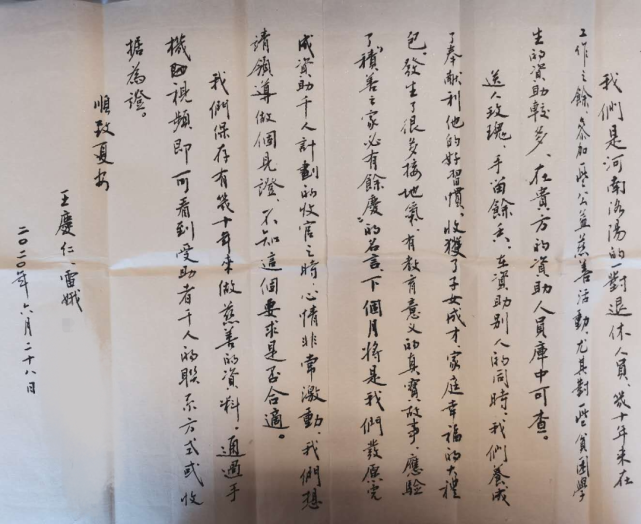 我們是河南洛陽的一對退休人員，幾十年來在
工作之餘，參加些公益慈善活動尤其對一些貧困學
生的資助較多，在貴方的資助人員庫中可查。
送人玫瑰，手留餘香，在資助別人的同時，我們養成
了奉献利他的好習慣，收獲了子女成才家庭幸福的大禮
包，發生了很多接地氣，有教育意义的真實故事，應驗
了“積善之家必有餘慶”的名言，下個月將是我們發願完
成資助千人計劃的收官之時，心情非常激動，我們想
請領導做個見證，不知這個要求是否合適。
我們保存有幾十年來做慈善的資料，通過手
機视頻即可看到受助者千人的聯系方式或收
据為證。
順致夏安
王慶仁、雷娥
二〇二〇年六月二十八日